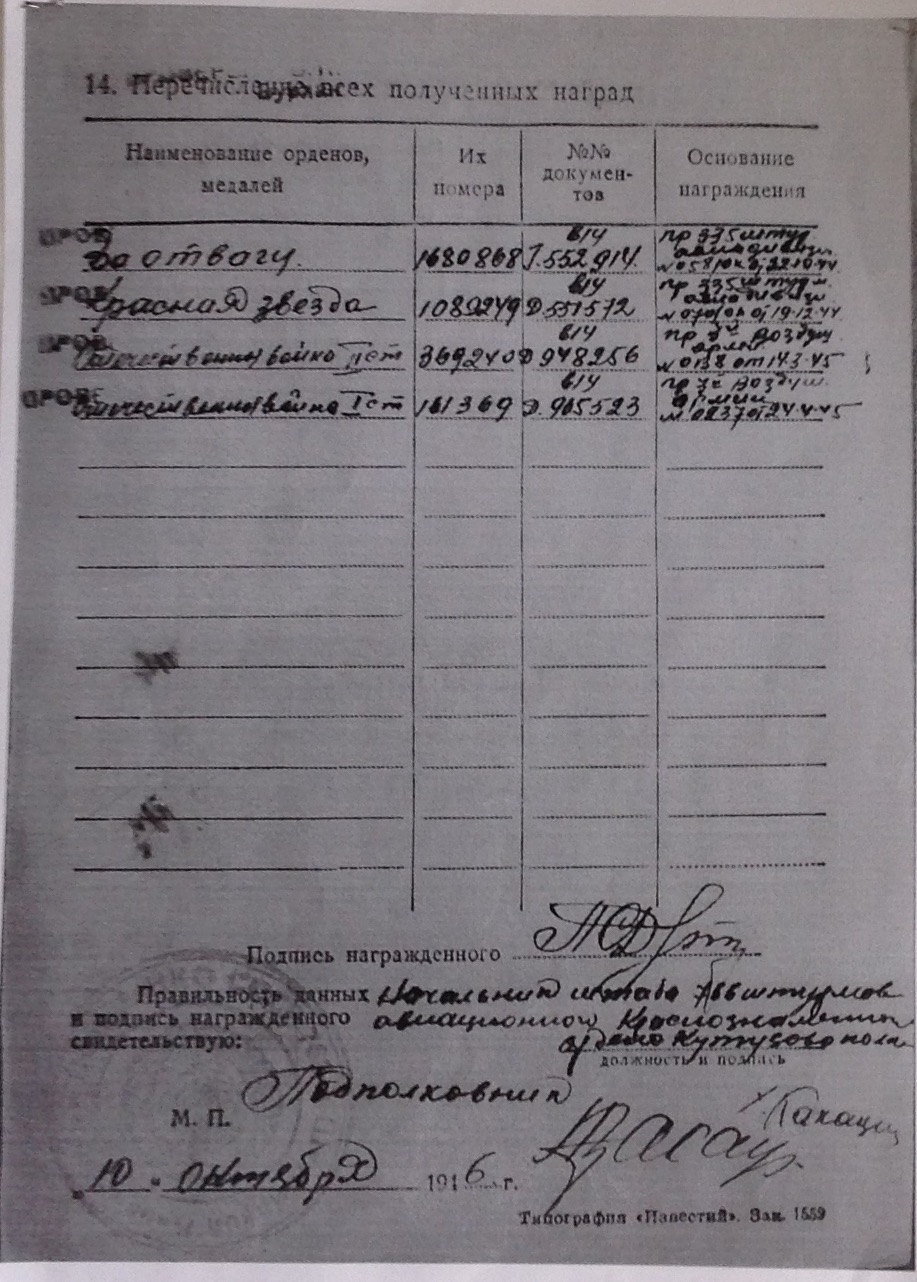 14. Перечисление всех полученных наград
Наименование орденов, медалей
Их номера
№№ документов
Основание награждения
ПРОВ
За отвагу. 1680868 Г.552914
в/ч
пр 335 штур
авиадивизи
№ 058/он от 22.10.44
ПРОВ
Красная звезда 1089249 Д 551572
в/ч
пр 335 штурм
авиадивизи
№ 070/он от 19.12.44
ПРОВ
Отечественная война II ст 369240 Д 948256
в/ч
пр 3й воздуш
армии
№ 0138 от 14.3.45
ПРОВ
Отечественная война I ст 161369 Д. 965523
в/ч
пр 3й воздуш.
армии
№ 0237 от 24.4.45
Подпись награжденного
Правильность данных Начальник штаба 766 штурмов
и подпись награжденного авиационного Краснознамен
свидетельствую: ордена Кутузова полка
должность и подпись
Подполковник
М. П.
„10" октября 1946 г.
Типография «Известий». Зак. 1559